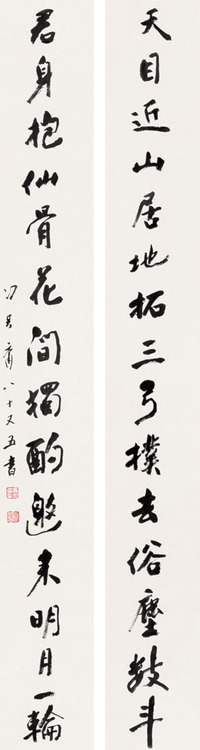 天目近山居地拓三弓撲去俗塵數斗
君身抱仙骨花間獨酌邀來明月一輪
八十又五書